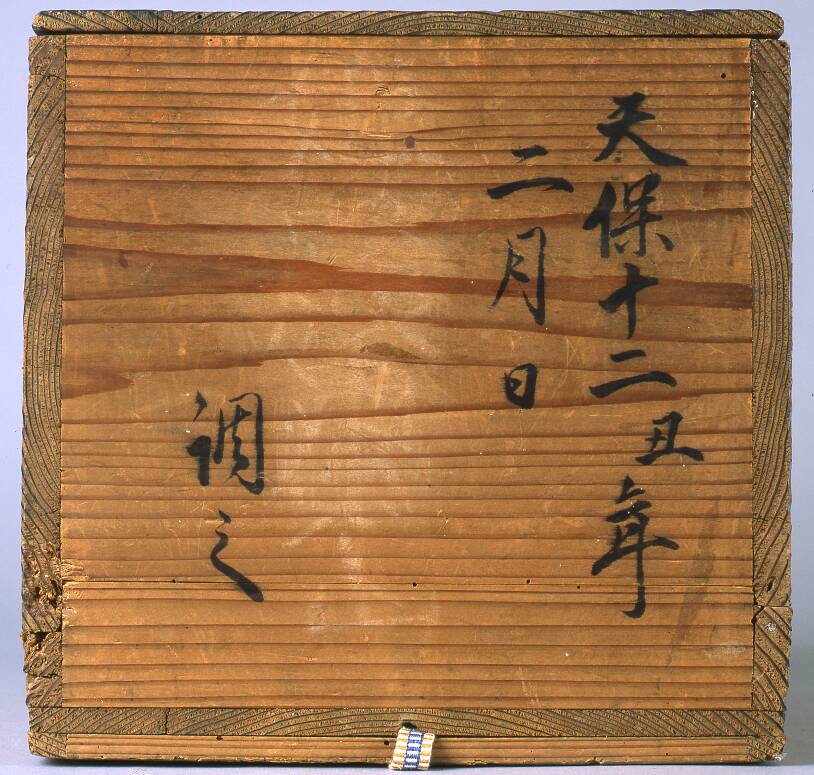 天保十二丑年
二月日
調之